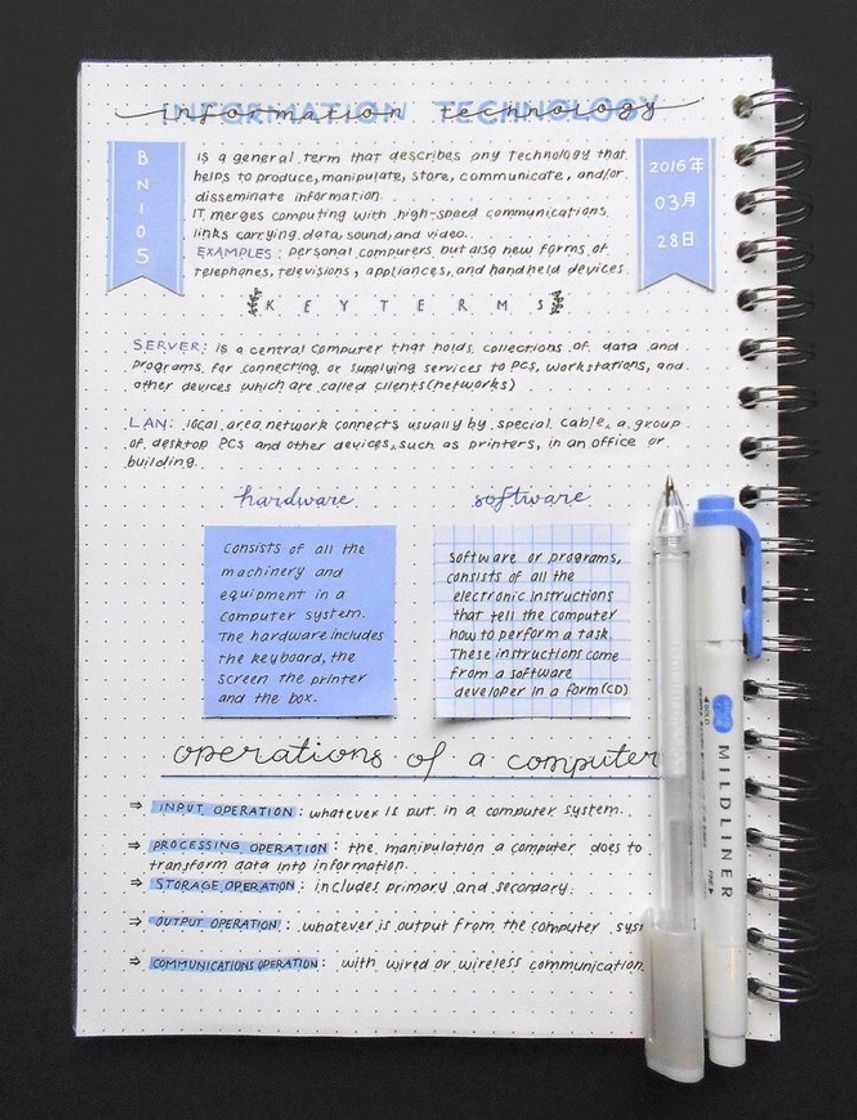 information technology
INFORMATION TECHNOLOGY
BN105
Is a general term that describes any technology that
helps to produce, manipulate, store, communicate, and/or
disseminate information.
IT merges computing with high-speed communications
links carrying data, sound, and video.
EXAMPLES: personal computers but also new forms of
telephones, televisions, appliances, and handheld devices
2016年
03月
28日
KEY TERMS
SERVER: Is a central computer that holds collections of data and
programs for connecting or supplying services to PCs, workstations, and
other devices which are called clients (networks)
LAN: local area network connects usually by special cable, a group
of desktop PCs and other devices, such as printers, in an office or
building.
hardware
Consists of all the
machinery and
equipment in a
computer system.
The hardware includes
the keyboard, the
screen the printer
and the box.
software
Software or programs,
consists of all the
electronic instructions
that tell the computer
how to perform a task.
These instructions come
from a software
developer in a form (CD)
operations of a computer
⇒ INPUT OPERATION: whatever is put in a computer system.
⇒ PROCESSING OPERATION: the manipulation a computer does to
transform data into information.
⇒ STORAGE OPERATION: includes primary and secondary.
⇒ OUTPUT OPERATION: whatever is output from the computer syst
⇒ COMMUNICATIONS OPERATION: with wired or wireless communication
MILDLINER